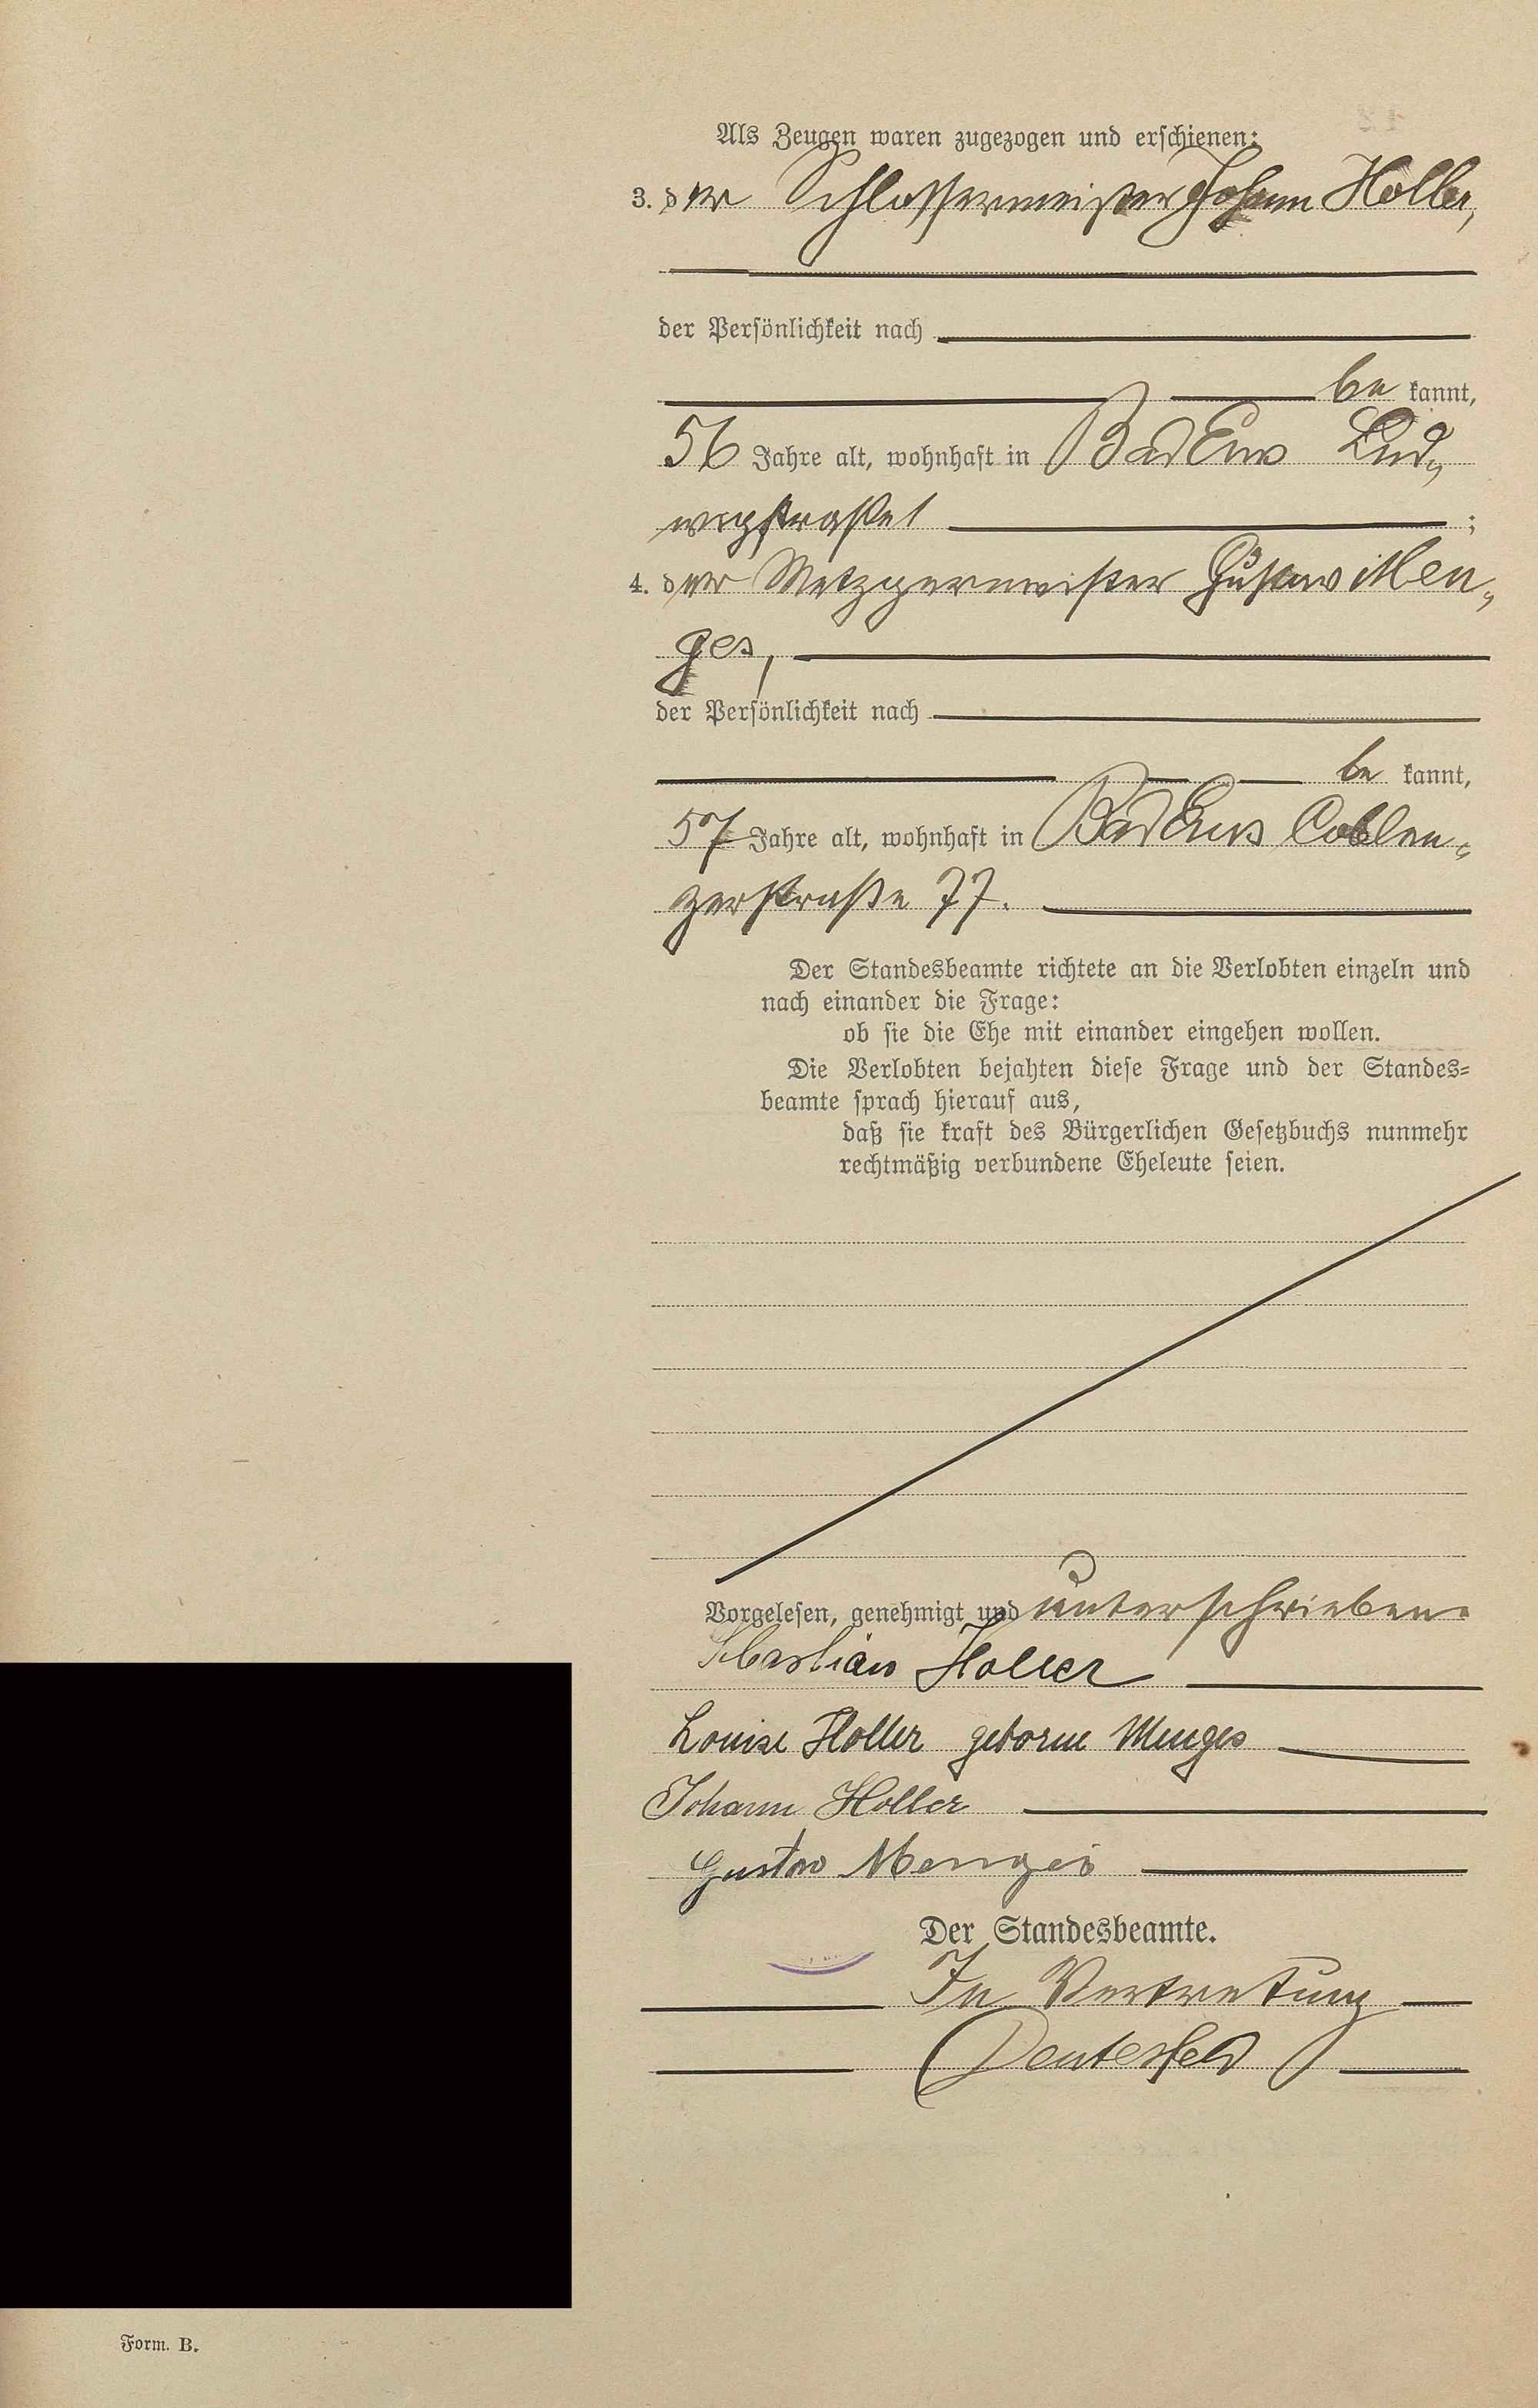 Als Zeugen waren zugezogen und erschienen:
3. der Schlossermeister Johann Holler,
der Persönlichkeit nach
be kannt,
56 Jahre alt, wohnhaft in Bad Ems Lud„
wigstraße 1 ;
4. der Metzgermeister Gustav Men„
ges,
der Persönlichkeit nach
be kannt,
57 Jahre alt, wohnhaft in Bad Ems Coblen„
zerstraße 77.
Der Standesbeamte richtete an die Verlobten einzeln und
nach einander die Frage:
ob sie die Ehe mit einander eingehen wollen.
Die Verlobten bejahten diese Frage und der Standes=
beamte sprach hierauf aus,
daß sie kraft des Bürgerlichen Gesetzbuchs nunmehr
rechtmäßig verbundene Eheleute seien.
Vorgelesen, genehmigt und unterschrieben.
Sebastian Holler
Louise Holler geborne Menges
Johann Holler
Gustav Menges
Der Standesbeamte.
In Vertretung
Deutesfeld
Form. B.